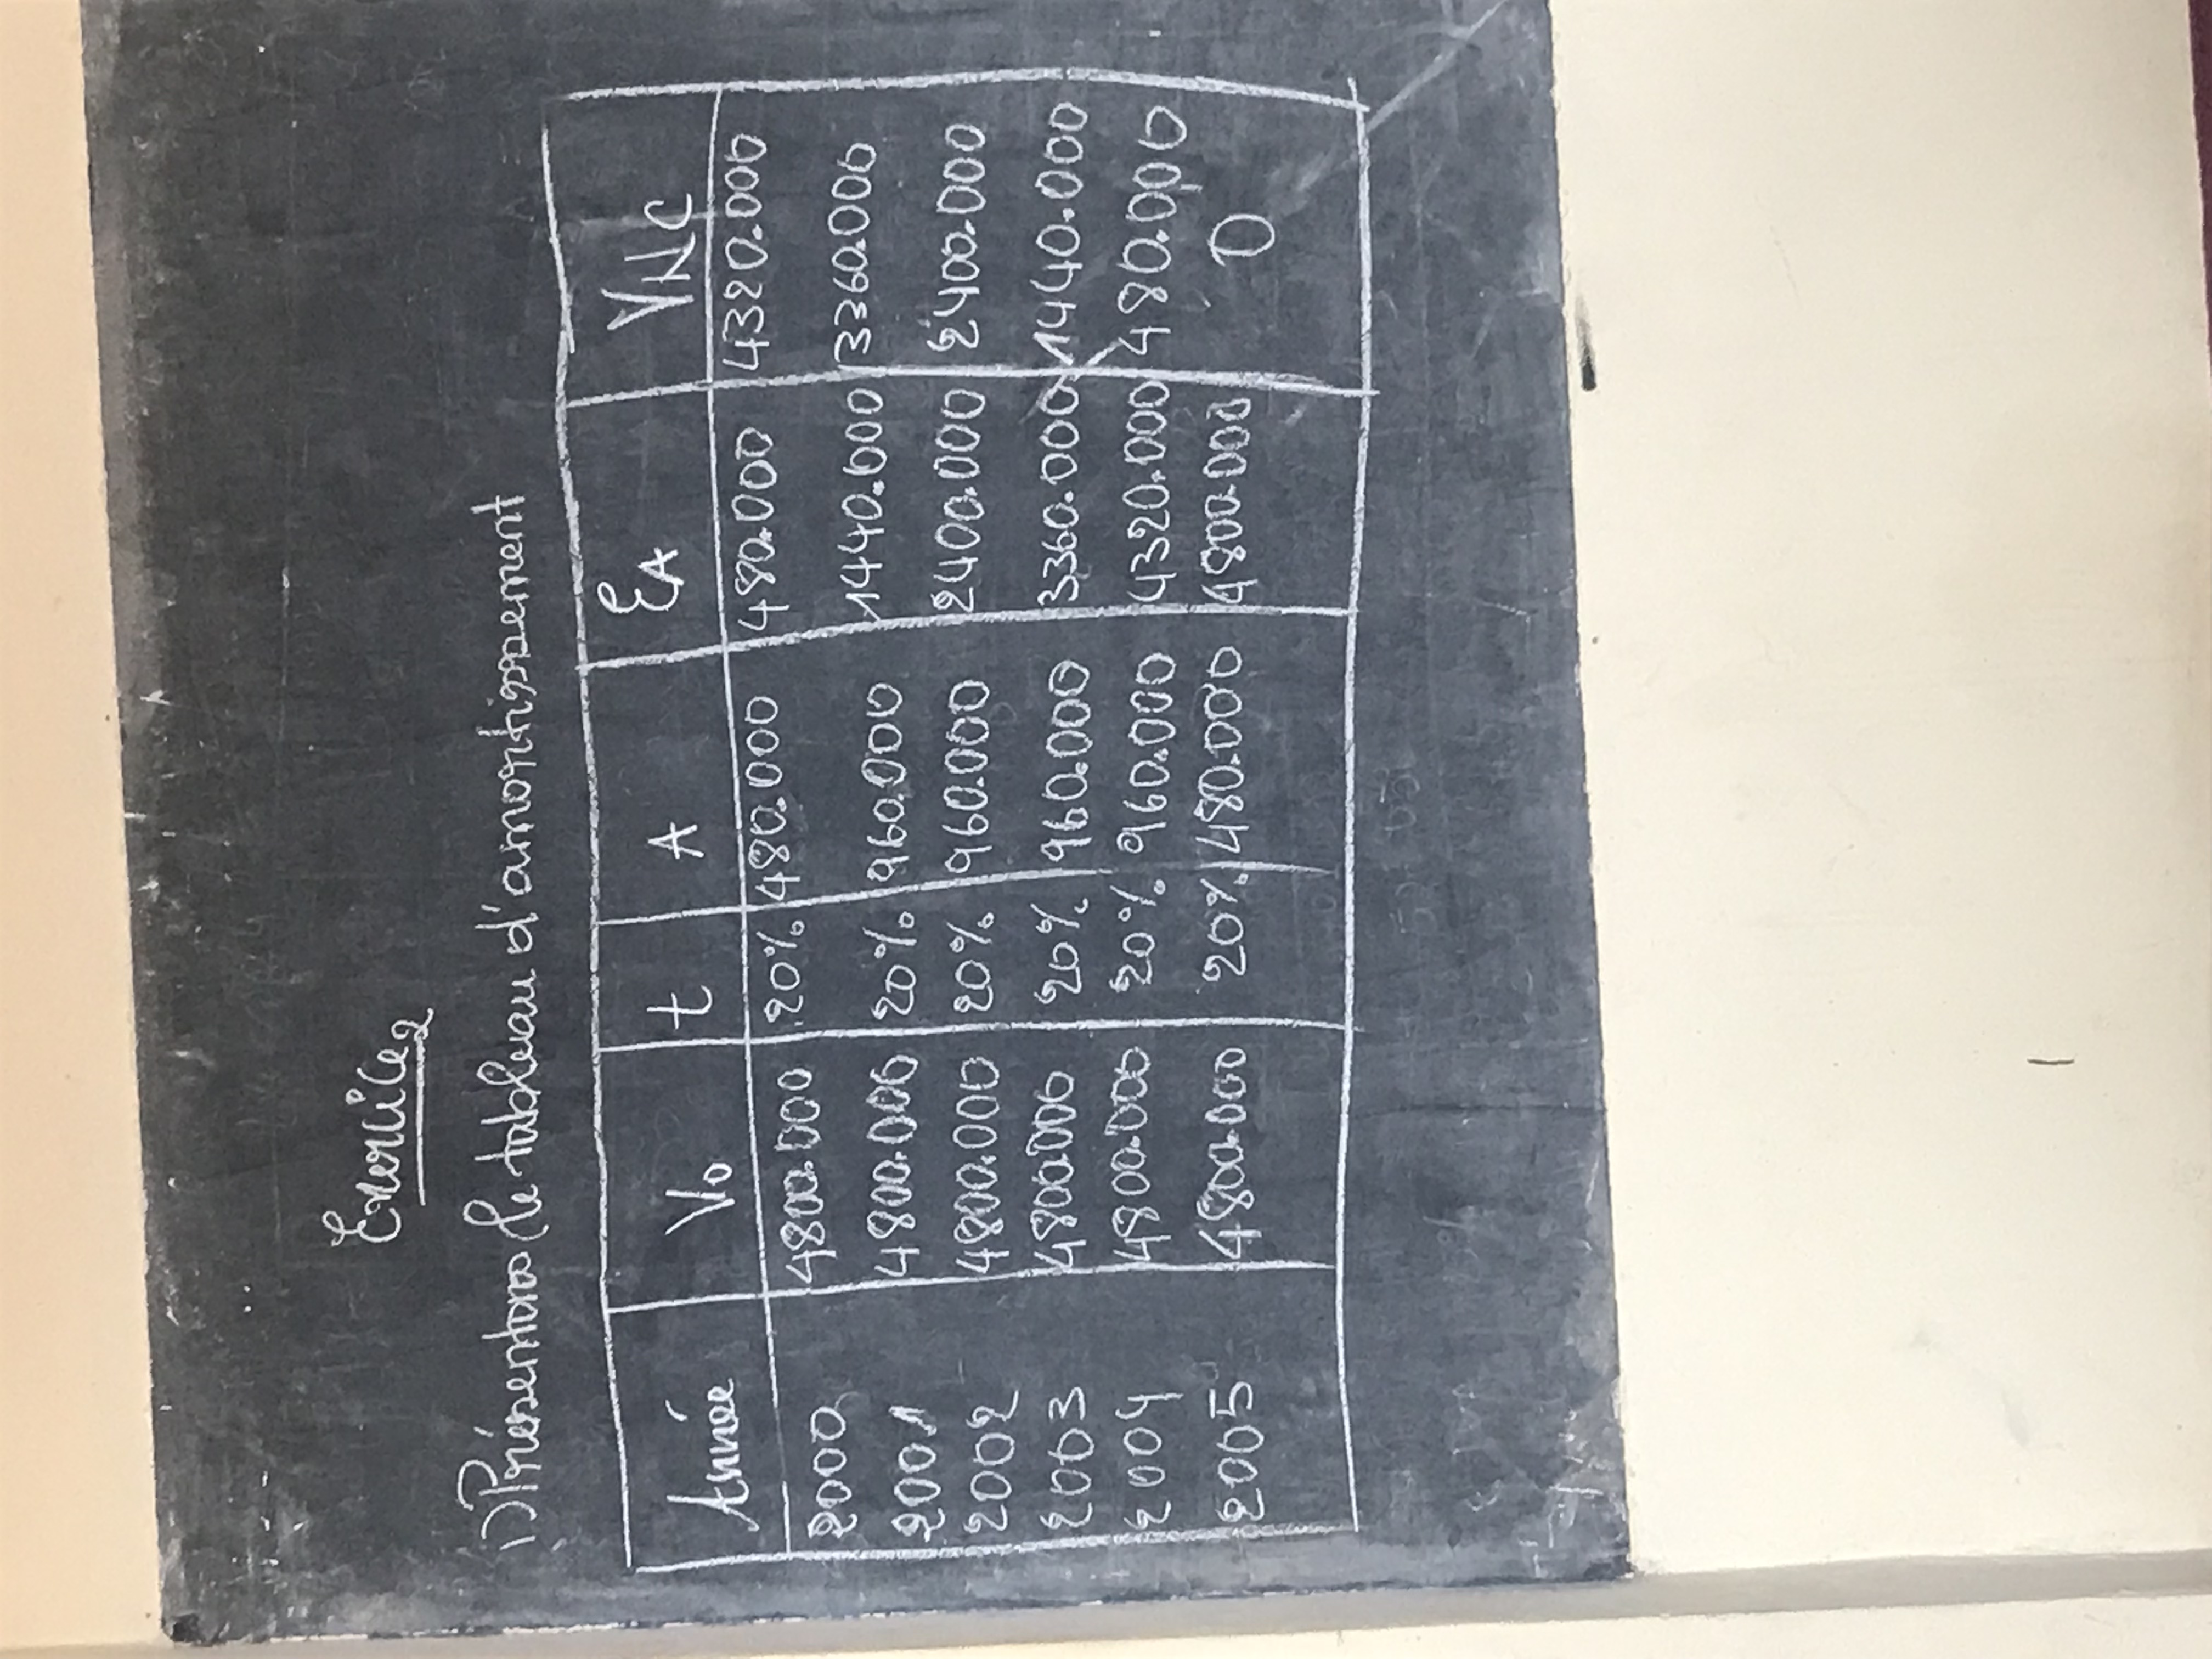 Exercice 2
1) Présentons le tableau d'amortissement
Année V0 t A ƐA VNC
2000 4800.000 20% 480.000 480.000 4320.000
2001 4800.000 20% 960.000 1440.000 3360.000
2002 4800.000 20% 960.000 2400.000 2400.000
2003 4800.000 20% 960.000 3360.000 1440.000
2004 4800.000 20% 960.000 4320.000 480.000
2005 4800.000 20% 480.000 4800.000 0